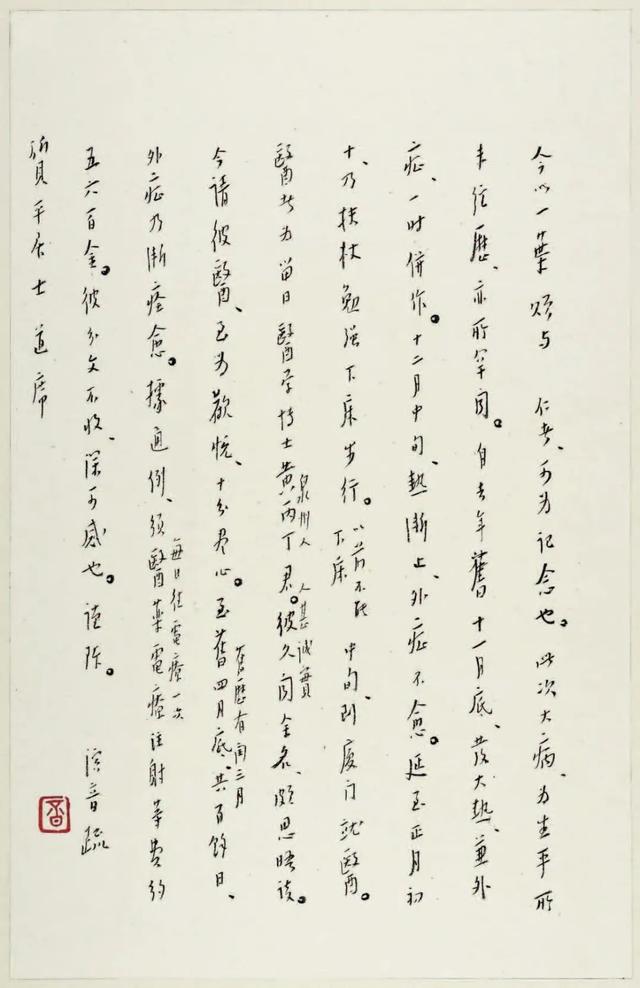 今以一葉贈与 仁者、可为记念也。此次大病、为生平所
未经歷、亦所罕闻。自去年舊十一月底、发大熱兼外
症、一时併作。十二月中旬、熱漸止、外症不愈。延至正月初
十、乃扶杖勉强下床步行。以前不能下床 中旬、到廈门就醫。
醫者为留日醫学博士黄丙丁君。泉州人 人甚诚實 彼久闻余名、頗思晤谈。
今请彼醫、至为歡悦、十分尽心。至舊四月底、舊歷有闰三月 共百餘日、
外症乃漸痊愈。據通例、须醫藥電療注射等费约 每日往電療一次
五六百金。彼分文不收、深可感也。谨陈。
質平居士道席 演音疏
音